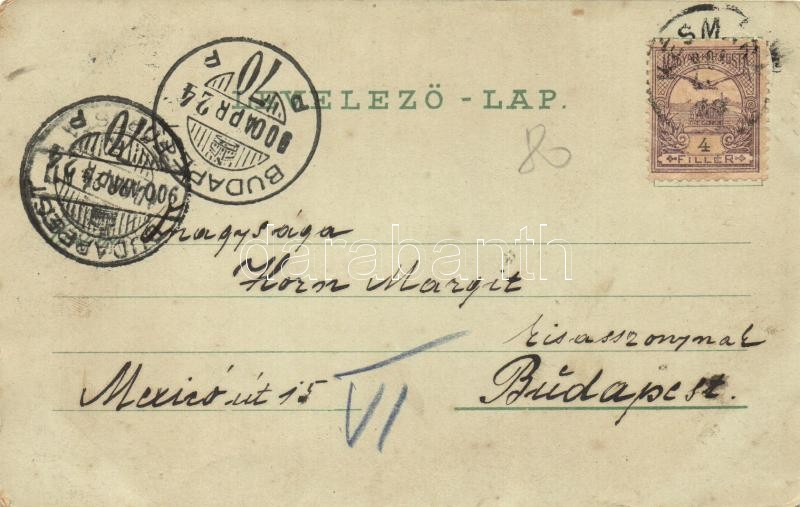 LEVELEZŐ-LAP.
MAGYAR KIR. POSTA
4
FILLÉR
BUDAPEST
900 APR 24
BUDAPEST
900 APR 24
80
Őnagysága
Horn Margit
kisasszonynak
Mexicó út 15
Budapest.
VI
darabanth